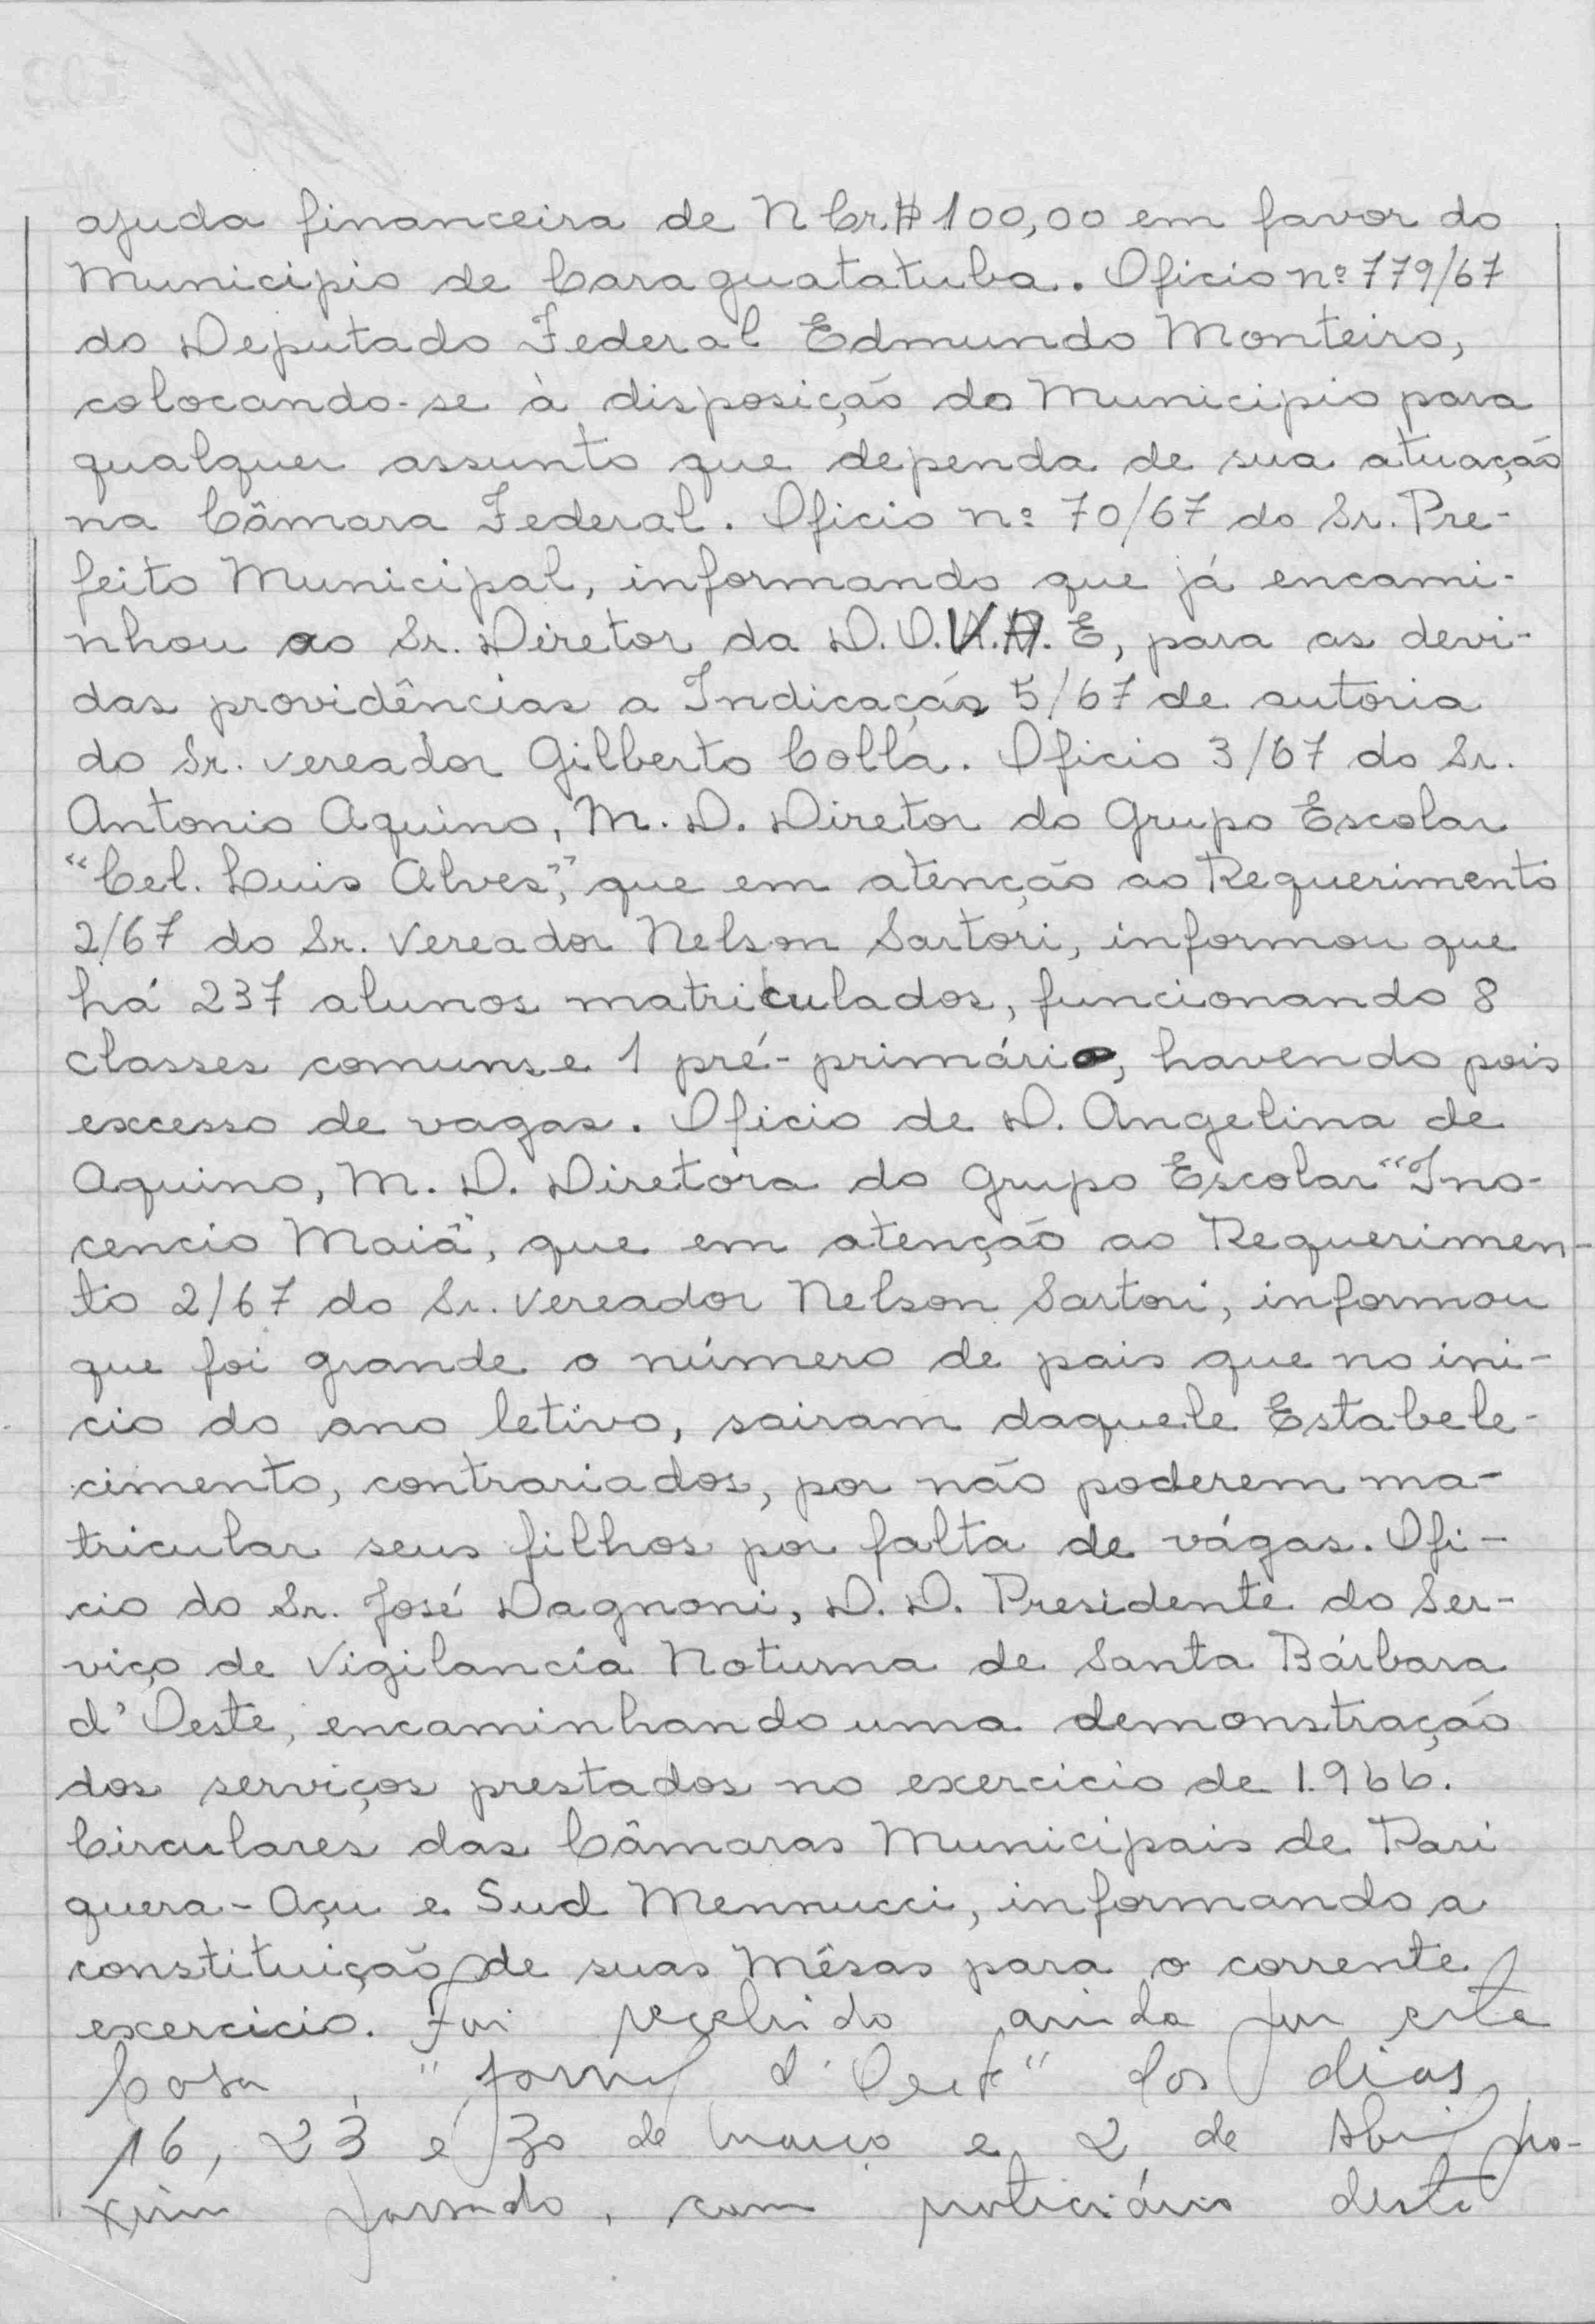 ajuda financeira de NCr.$ 100,00 em favor do
Municipio de Caraguatatuba. Oficio nº 779/67
do Deputado Federal Edmundo Monteiro,
colocando-se à disposição do Municipio para
qualquer assunto que dependa de sua atuação
na Câmara Federal. Oficio nº 70/67 do Sr. Pre-
feito Municipal, informando que já encami-
nhou ao Sr. Diretor da D.O.V.A.E, para as devi-
das providências a Indicação 5/67 de autoria
do Sr. vereador Gilberto Colla. Oficio 3/67 do Sr.
Antonio Aquino, M. D. Diretor do Grupo Escolar
"Cel. Luis Alves", que em atenção ao Requerimento
2/67 do Sr. Vereador Nelson Sartori, informou que
há 237 alunos matriculados, funcionando 8
classes comuns e 1 pré-primário, havendo pois
excesso de vagas. Oficio de D. Angelina de
Aquino, M. D. Diretora do Grupo Escolar "Ino-
cencio Maia", que em atenção ao Requerimen-
to 2/67 do Sr. Vereador Nelson Sartori, informou
que foi grande o número de pais que no ini-
cio do ano letivo, sairam daquele Estabele-
cimento, contrariados, por não poderem ma-
tricular seus filhos por falta de vágas. Ofi-
cio do Sr. José Dagnoni, D. D. Presidente do Ser-
viço de Vigilancia Noturna de Santa Bárbara
d'Oeste, encaminhando uma demonstração
dos serviços prestados no exercicio de 1.966.
Circulares das Câmaras Municipais de Pari
quera-Açu e Sud Mennucci, informando a
constituição de suas Mêsas para o corrente
exercicio. Foi recebido ainda por esta
Casa, "Jornal d'Oeste" dos dias
16, 23 e 30 de março e 2 de Abril pro-
ximo passado, com noticiário desta